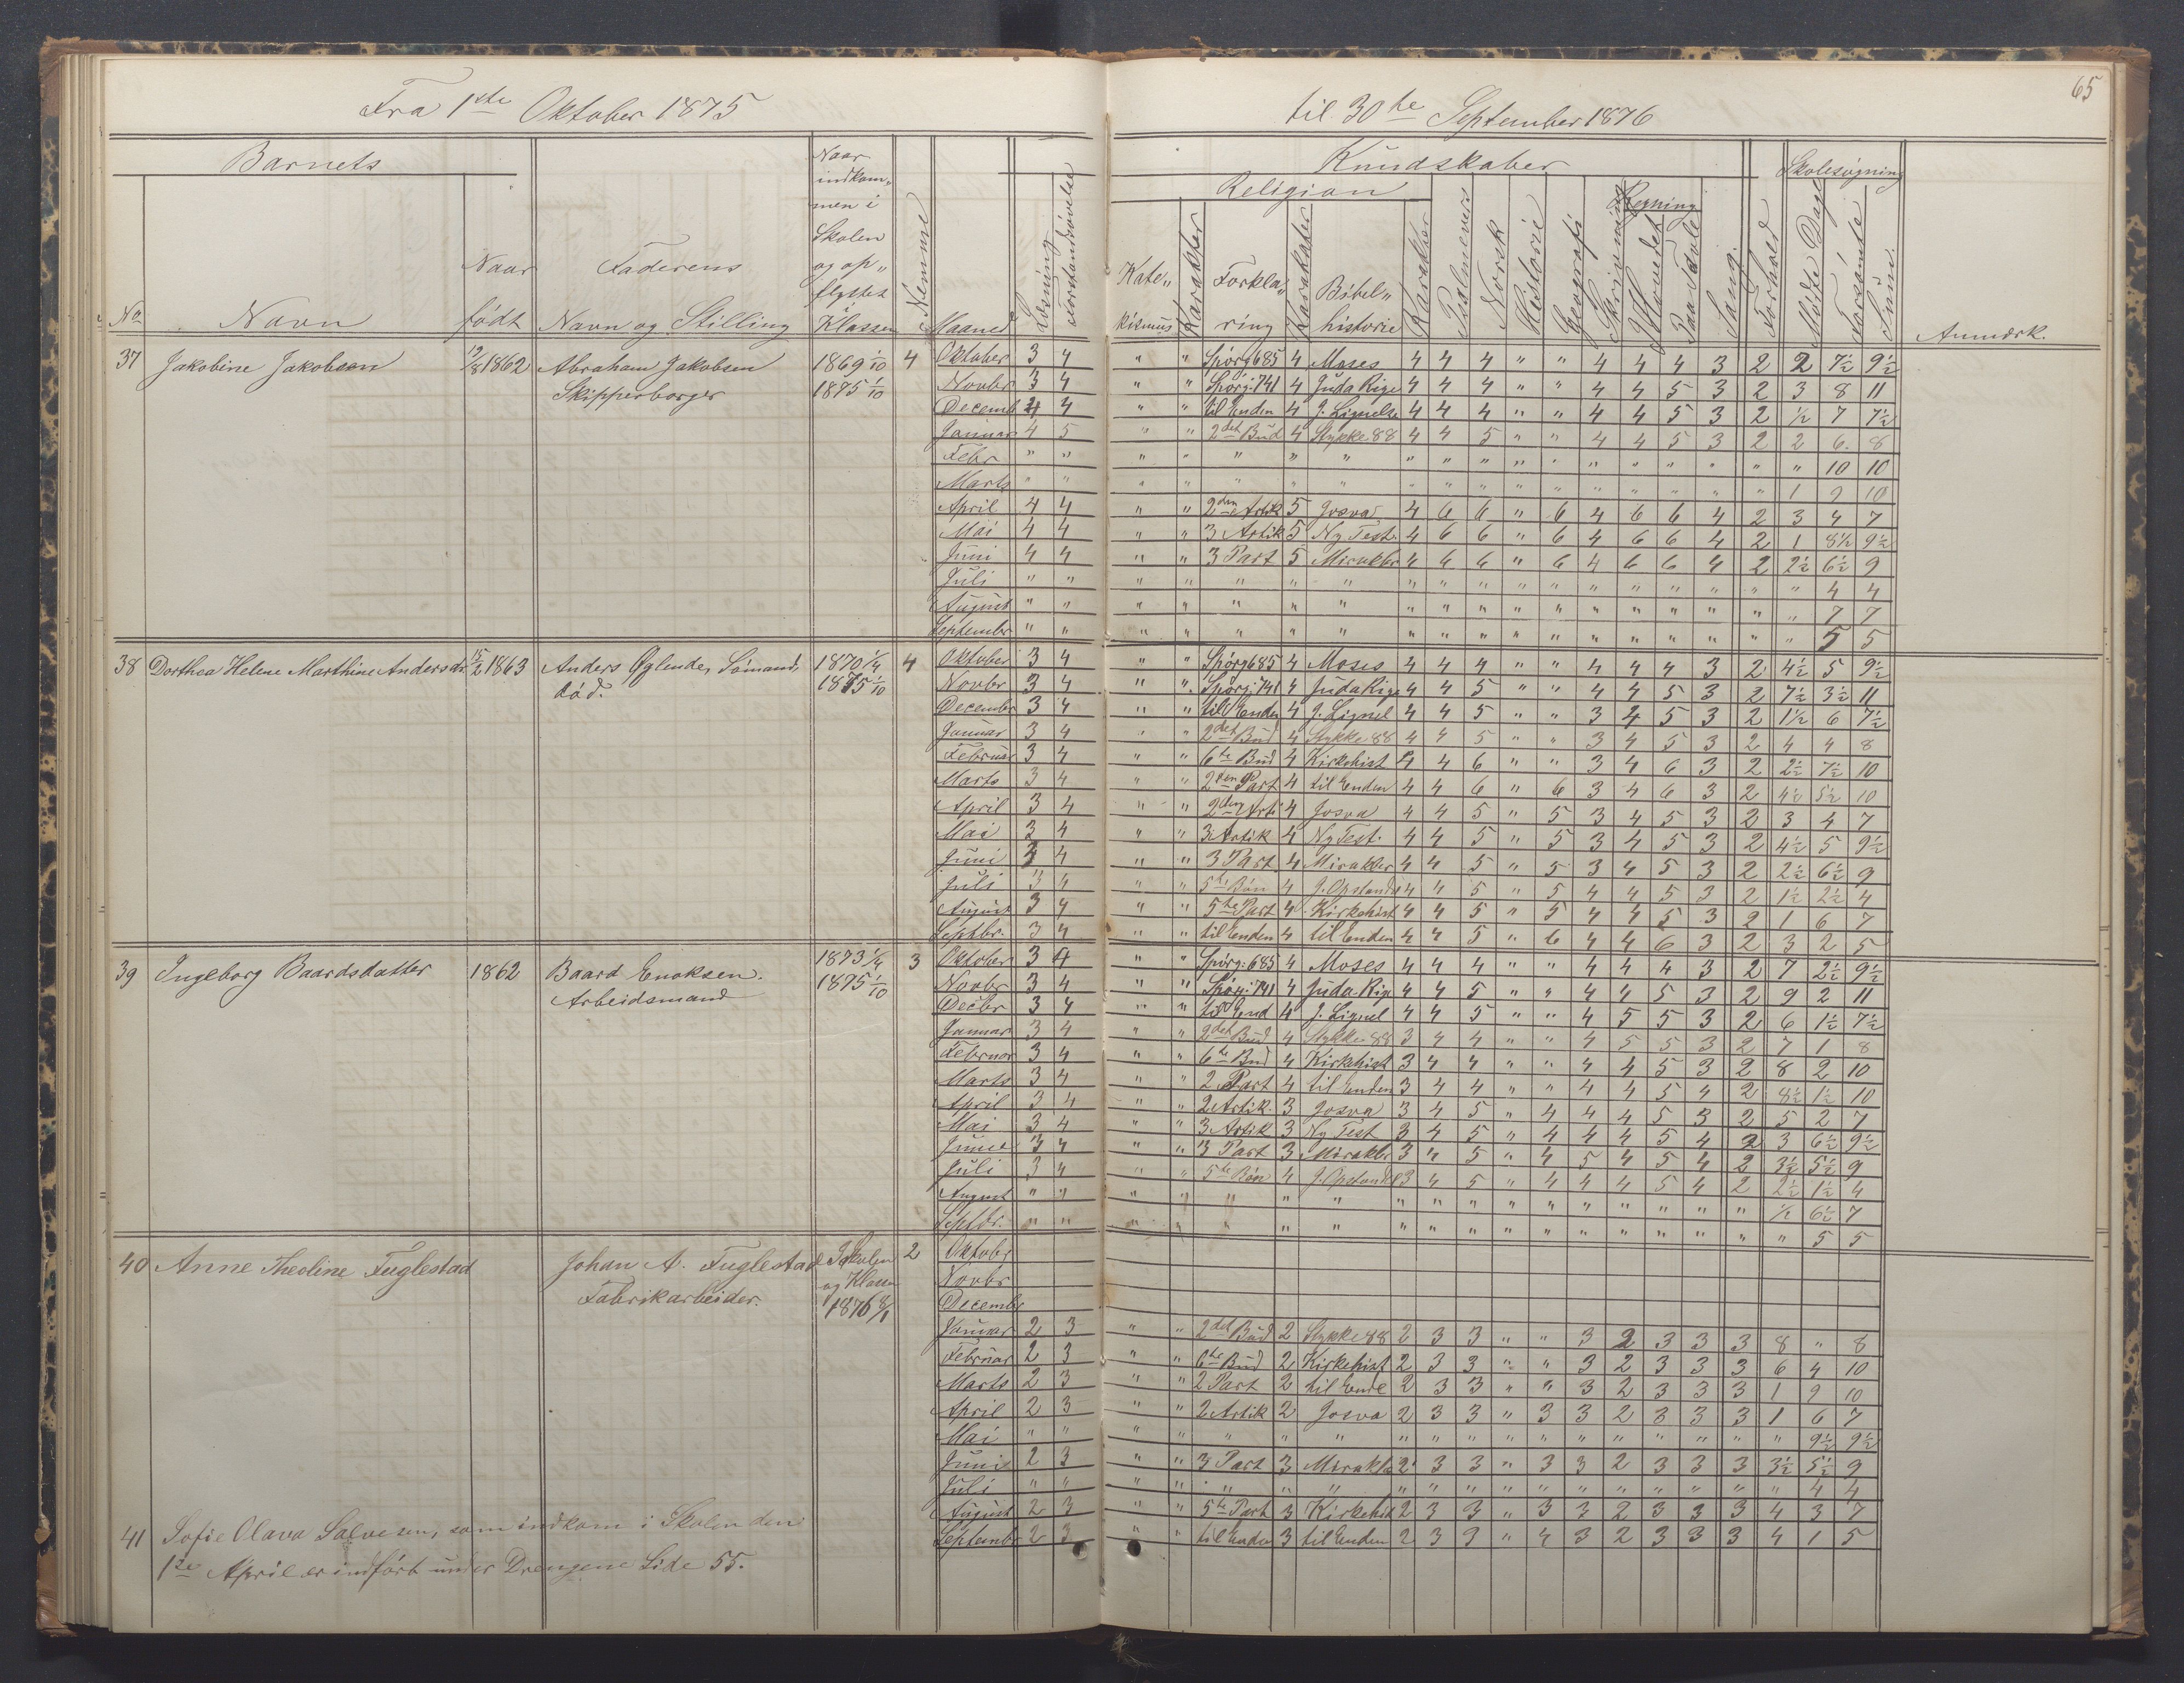 65
Fra 1ste Oktober 1875 til 30te September 1876
Barnets Kundskaber Skolesøgning
Religion Regning
No Navn Naar født Faderens Navn og Stilling Naar indkom„men i Skolen og op„flyttet Klassen Nemme Maaned Læsning Forstandsøvelse Kate„kismus Karakter Forkla„ring Karakter Bibel„historie Karakter Psalmevers Norsk Historie Geografi Skrivning I Hovedet Paa Tavle Sang Forhold Mødte Dage Forsømte Sum Anmærk.
37 Jakobine Jakobsen 19/8 1862 Abraham Jakobsen 1869 1/10 4 Oktober 3 4 " " Spörg 685 4 Moses 4 4 4 " " 4 4 4 3 2 2 7½ 9½
Skipperborger 1875 1/10 Novbr 3 4 " " Spörg: 741 4 Juda Rige 4 4 4 " " 4 4 5 3 2 3 8 11
Decemb 4 4 " " til Enden 4 J. Lignelse 4 4 4 " " 4 4 5 3 2 ½ 7 7½
Januar 4 5 " " 2det Bud 4 Stykke 88 4 4 5 " " 4 4 5 3 2 2 6 8
Febr " " " " " " " " " " " " " " " " " " 10 10
Marts " " " " " " " " " " " " " " " " " 1 9 10
April 4 4 " " 2den Artik 5 Josva 4 6 6 " 6 4 6 6 4 2 3 4 7
Mai 4 4 " " 3 Artik 5 Ny Test. 4 6 6 " 6 4 6 6 4 2 1 8½ 9½
Juni 4 4 " " 3 Part 5 Mirakler 4 6 6 " 6 4 6 6 4 2 2½ 6½ 9
Juli " " " " " " " " " " " " " " " " " " 4 4
August " " " " " " " " " " " " " " " " " " 7 7
Septembr " " " " " " " " " " " " " " " " " " 5 5
38 Dorthea Helene Marthine Andersdr. 15/2 1863 Anders Øglende, Sömand, 1870 1/4 4 Oktober 3 4 " " Spörg 685 4 Moses 4 4 4 " " 4 4 4 3 2 4½ 5 9½
död. 1875 1/10 Novbr 3 4 " " Spörg: 741 4 Juda Rige 4 4 5 " " 4 4 5 3 2 7½ 3½ 11
Decembr 3 4 " " til Enden 4 J. Lignel 4 4 5 " " 3 4 5 3 2 1½ 6 7½
Januar 3 4 " " 2det Bud 4 Stykke 88 4 4 5 " " 3 4 5 3 2 4 4 8
Februar 3 4 " " 6te Bud 4 Kirkehist 4 4 6 " " 3 4 6 3 2 2½ 7½ 10
Marts 3 4 " " 2den Part 4 til Enden 4 4 6 " 6 3 4 6 3 2 4½ 5½ 10
April 3 4 " " 2den Arti 4 Josva 4 4 5 " 5 3 4 5 3 2 3 4 7
Mai 3 4 " " 3 Artik 4 Ny Test. 4 4 5 " 5 3 4 5 3 2 4½ 5 9½
Juni 3 4 " " 3 Part 4 Mirakler 4 4 5 " 5 3 4 5 3 2 2½ 6½ 9
Juli 3 4 " " 5te Bön 4 J. Opstands 4 4 5 " 5 4 4 5 3 2 1½ 2½ 4
August 3 4 " " 5te Part 4 Kirkehist 4 4 5 " 5 4 4 5 3 2 1 6 7
Septbr. 3 4 " " til Enden 4 til Enden 4 4 5 " 6 4 4 6 3 2 3 2 5
39 Ingeborg Baardsdatter 1862 Baard Enoksen. 1873 1/4 3 Oktober 3 4 " " Spörg: 685 4 Moses 4 4 4 " " 4 4 4 3 2 7 2½ 9½
Arbeidsmand 1875 1/10 Novbr 3 4 " " Spörg: 741 4 Juda Rige 4 4 5 " " 4 4 5 3 2 9 2 11
Decbr 3 4 " " til End 4 J. Lignel 4 4 5 " " 4 5 5 3 2 6 1½ 7½
Januar 3 4 " " 2det Bud 4 Stykke 88 3 4 4 " " 4 5 5 3 2 7 1 8
Februar 3 4 " " 6te Bud 4 Kirkehist 3 4 4 " " 4 4 5 3 2 8 2 10
Marts 3 4 " " 2 Part 4 til Enden 3 4 4 " " 4 4 5 4 2 8½ 1½ 10
April 3 4 " " 2 Artik. 3 Josva 3 4 5 " 4 4 4 5 3 2 5 2 7
Mai 3 4 " " 3 Artik 3 Ny Test 3 4 5 " 4 4 4 5 4 2 3 6½ 9½
Juni 3 4 " " 3 Part 3 Mirakler 3 4 5 " 4 5 4 5 4 2 3½ 5½ 9
Juli 3 4 " " 5te Bön 4 J. Opstandls 3 4 5 " 4 4 4 5 4 2 2½ 1½ 4
August " " " " " " " " " " " " " " " " " ½ 6½ 7
Septbr. " " " " " " " " " " " " " " " " " " 5 5
40 Anne Theoline Fuglestad Johan A. Fuglestad I Skolen 2 Oktobr
Fabrikarbeider. og Klassen Novbr
1876 8/1 Decembr
Januar 2 3 " " 2det Bud 2 Stykke 88 2 3 3 " " 3 2 3 3 3 8 " 8
Februar 2 3 " " 6te Bud 2 Kirkehist 2 3 3 " " 3 2 3 3 3 6 4 10
Marts 2 3 " " 2 Part 2 til Ende 2 3 3 " " 3 2 3 3 3 1 9 10
April 2 3 " " 2 Artik 2 Josva 2 3 3 " 3 3 2 3 3 3 1 6 7
Mai " " " " " " " " " " " " " " " " " " 9½ 9½
Juni 2 3 " " 3 Part 3 Mirakler 2 3 3 " 3 3 2 3 3 3 3½ 5½ 9
Juli " " " " " " " " " " " " " " " " " " 4 4
August 2 3 " " 5te Part 3 Kirkehist 2 3 3 " 3 3 2 3 3 3 4 3 7
Septembr 2 3 " " til Enden 3 til Enden 2 3 3 " 4 3 2 3 3 3 4 1 5
41 Sofie Olava Salvesen, som indkom i Skolen den
1ste April er indfört under Drengene Side 55.